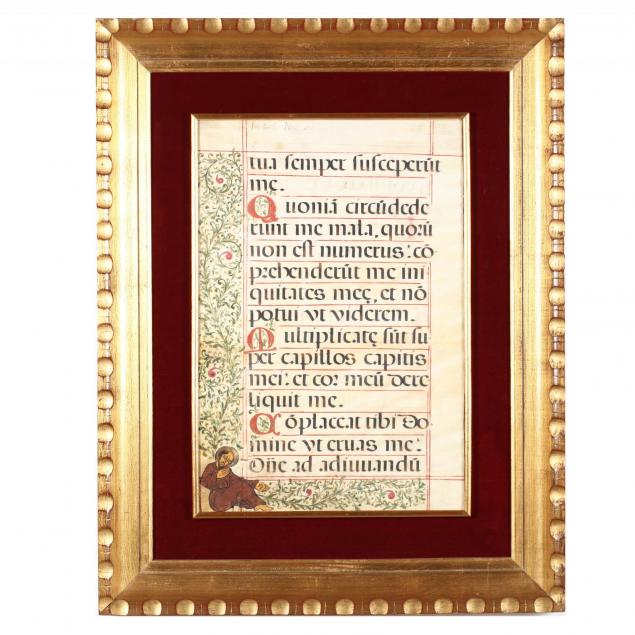 tua semper susceperūt
me.
Quoniā circūdede
runt me mala, quorū
non est numerus: cō
prehenderūt me ini
quitates meę, et nō
potui vt viderem.
Multiplicatę sūt su
per capillos capitis
mei: et cor meū dere
liquit me.
Cōplaceat tibi Do
mine vt eruas me:
Dñe ad adiuuandū